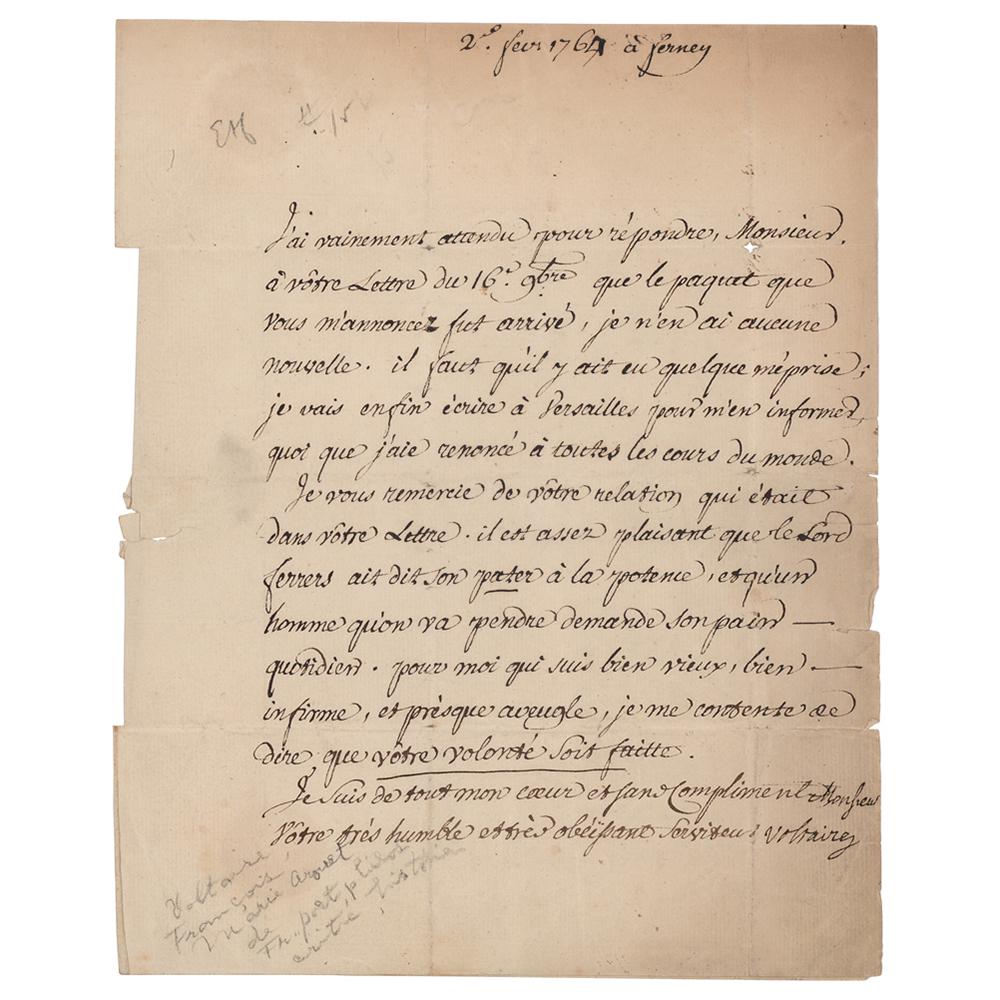 2.° fevr 1764 à ferney
J'ai vainement attendu pour répondre, Monsieur,
à vôtre Lettre du 16.e 9bre que le paquet que
vous m'annoncez fut arrivé, je n'en ai aucune
nouvelle. il faut qu'il y ait eu quelque méprise;
je vais enfin écrire à Versailles pour m'en informer,
quoi que j'aie renoncé à toutes les cours du monde.
Je vous remercie de vôtre relation qui était
dans vôtre Lettre. il est assez plaisant que le Lord
ferrers ait dit son pater à la potence, et qu'un
homme qu'on va pendre demande son pain —
quotidien. pour moi qui suis bien vieux, bien —
infirme, et présque aveugle, je me contente de
dire que vôtre volonté soit faitte.
Je suis de tout mon cœur et sans compliment Monsieur
Vôtre très humble et très obéissant serviteur Voltaire
Voltaire,
François
Marie Arouet
de
Fr. poet, philos
critic, historian